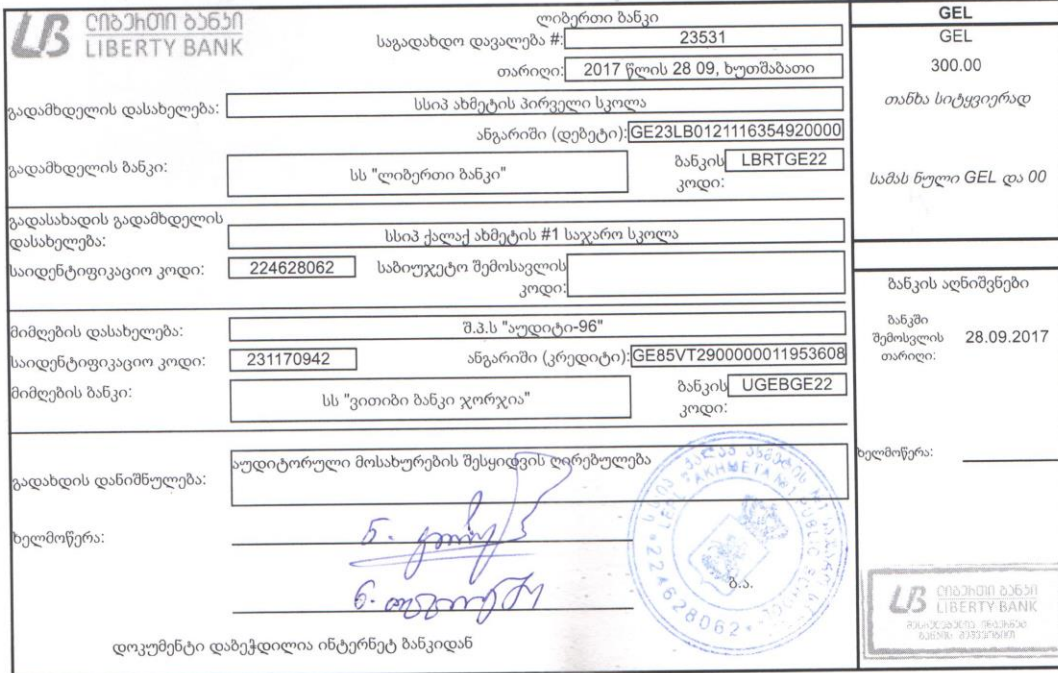 ლიბერთი ბანკი
LIBERTY BANK
ლიბერთი ბანკი
საგადახდო დავალება #: 23531
თარიღი: 2017 წლის 28 09, ხუთშაბათი
გადამხდელის დასახელება: სსიპ ახმეტის პირველი სკოლა
ანგარიში (დებეტი): GE23LB0121116354920000
გადამხდელის ბანკი: სს "ლიბერთი ბანკი" ბანკის კოდი: LBRTGE22
გადასახადის გადამხდელის
დასახელება: სსიპ ქალაქ ახმეტის #1 საჯარო სკოლა
საიდენტიფიკაციო კოდი: 224628062 საბიუჯეტო შემოსავლის
კოდი:
მიმღების დასახელება: შ.პ.ს "აუდიტი-96"
საიდენტიფიკაციო კოდი: 231170942 ანგარიში (კრედიტი): GE85VT2900000011953608
მიმღების ბანკი: სს "ვითიბი ბანკი ჯორჯია" ბანკის კოდი: UGEBGE22
გადახდის დანიშნულება: აუდიტორული მოსახურების შესყიდვის ღირებულება
ხელმოწერა:
ბ.ა.
დოკუმენტი დაბეჭდილია ინტერნეტ ბანკიდან
GEL
GEL
300.00
თანხა სიტყვიერად
სამას ნული GEL და 00
ბანკის აღნიშვნები
ბანკში
შემოსვლის 28.09.2017
თარიღი:
ხელმოწერა:
AKHMETA №1 PUBLIC SCHOOL
*224628062*
ლიბერთი ბანკი
LIBERTY BANK